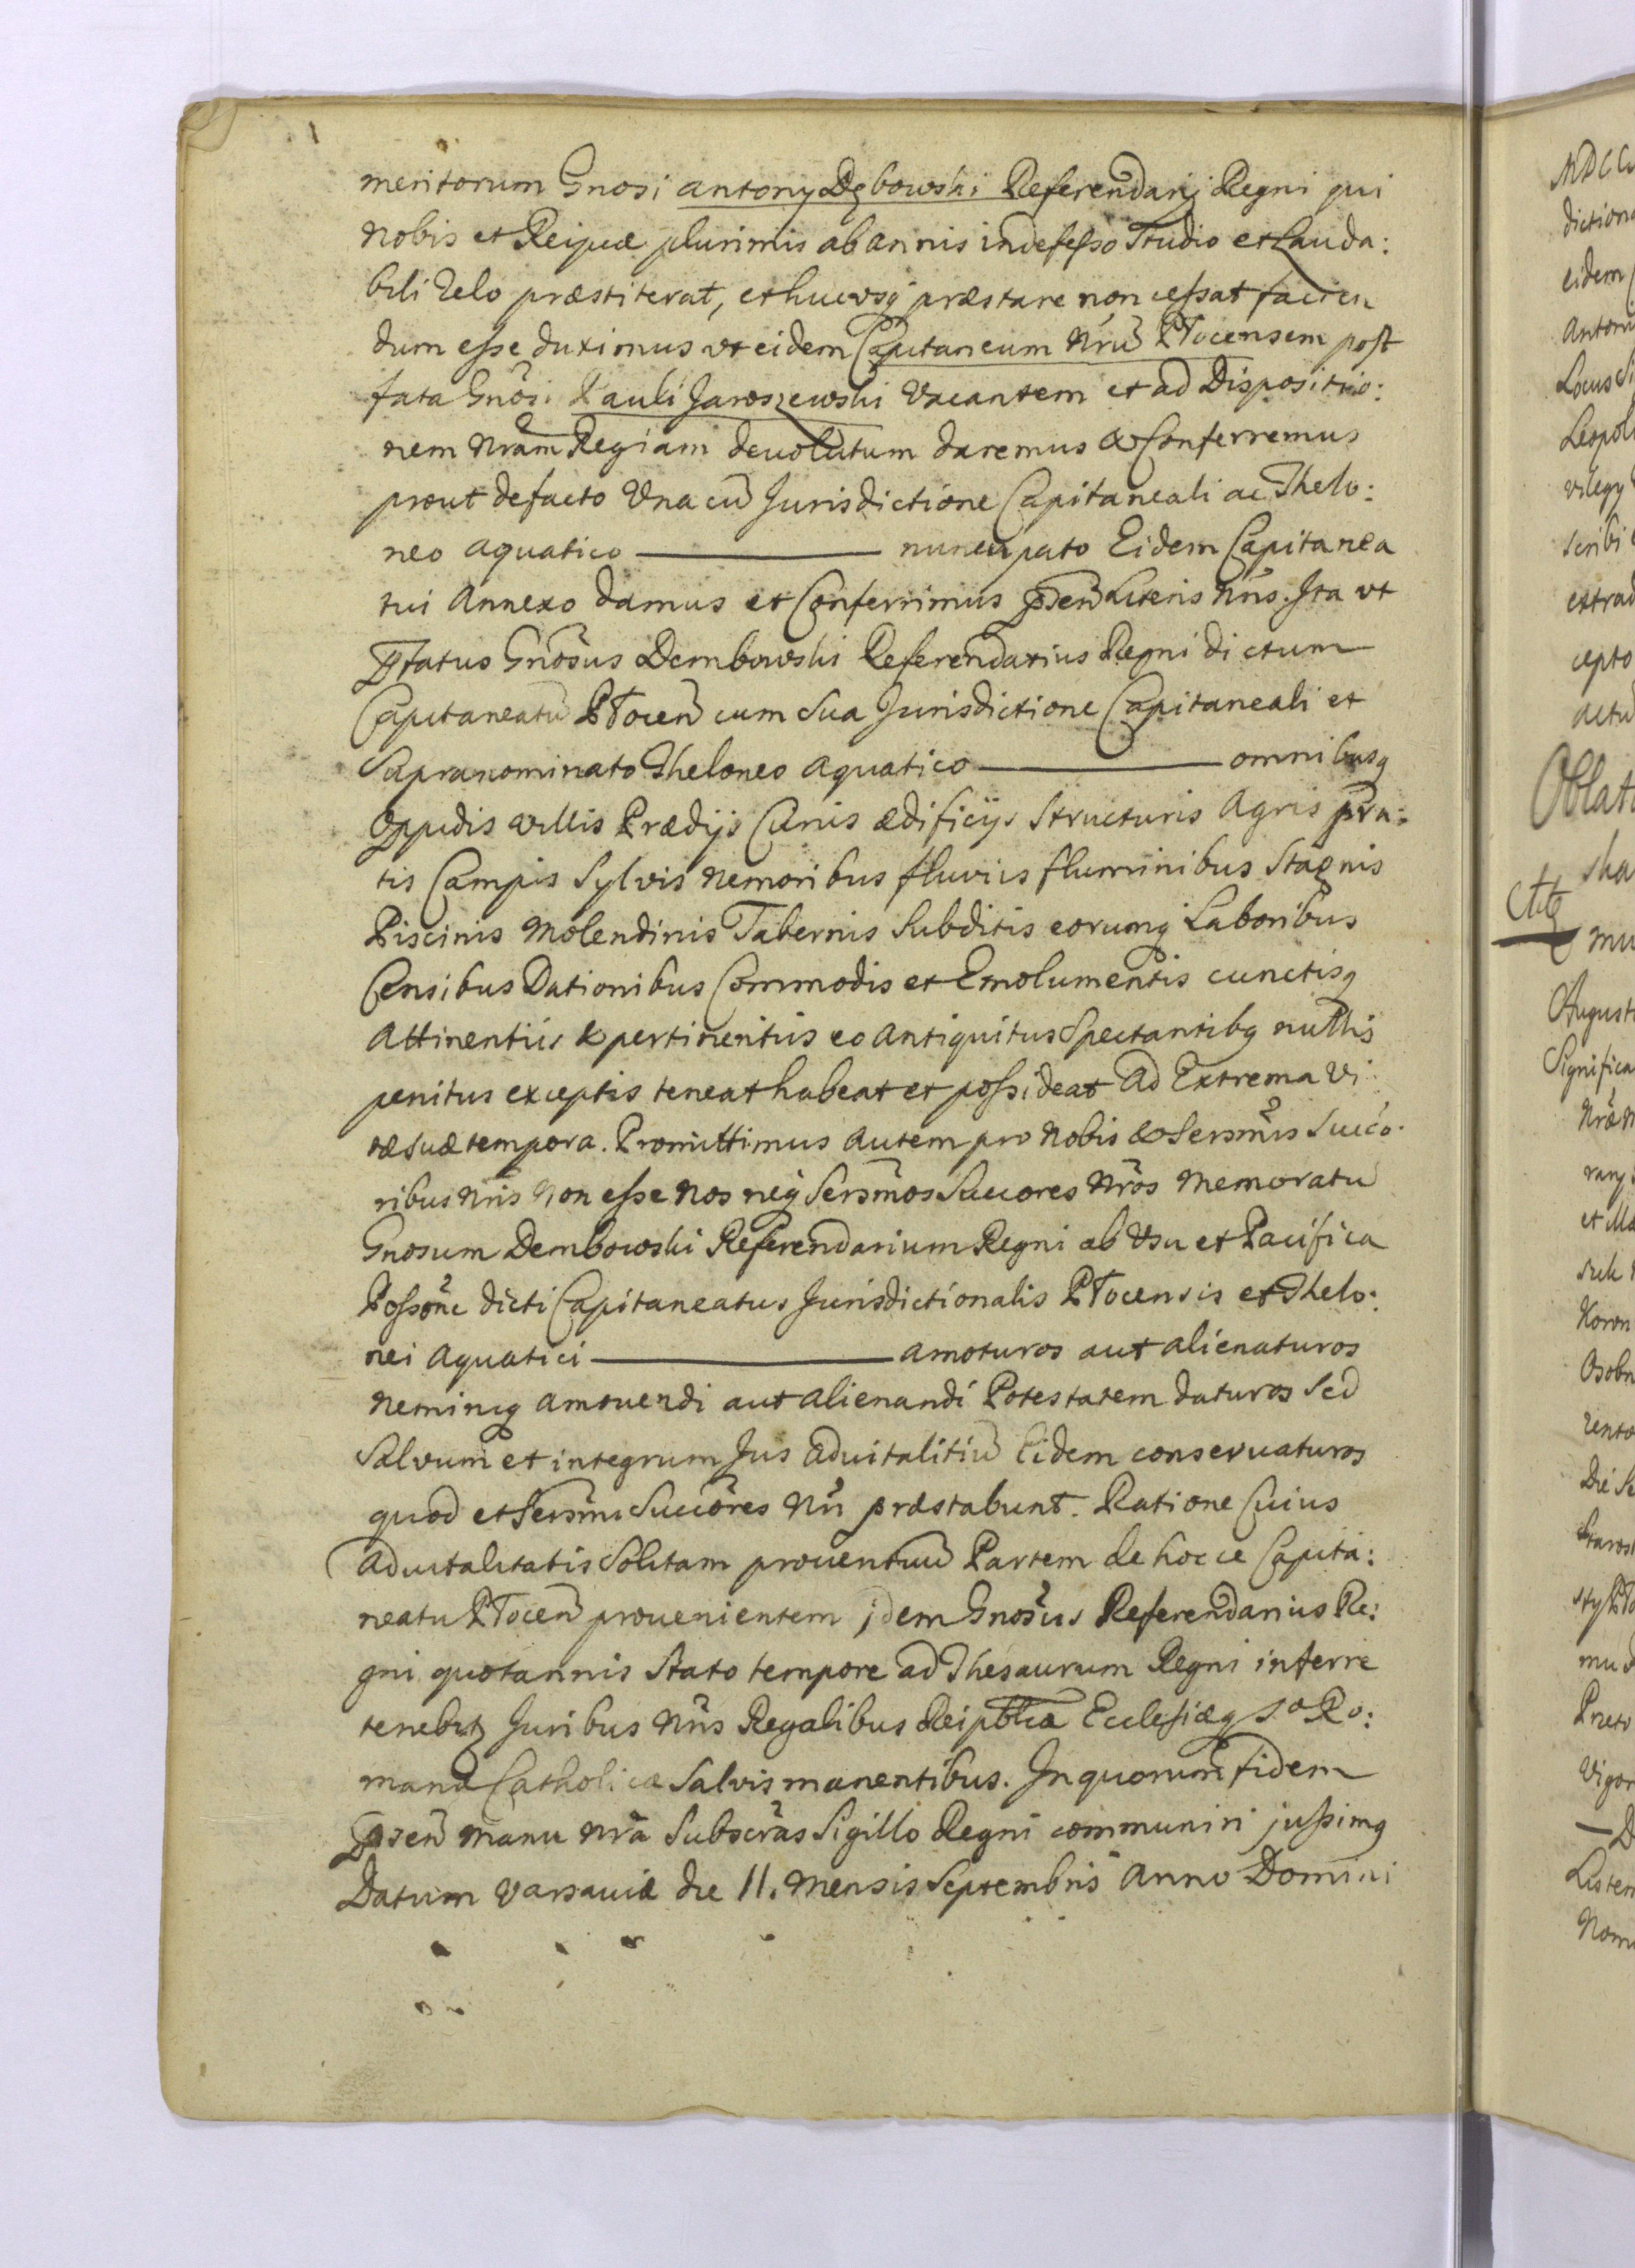 meritorum Gnosi antony Dębowski Referendarij Regni qui
nobis et Reipuæ plurimis ab annis indefesso studio et Lauda:
bili zelo præstiterat, et hucusq præstare non cessat facien
dum esse duximus ut eidem Capitaneum Nrũ Płocensem post
fata Gnosi Pauli Jaroszewski Vacantem et ad Dispositio:
nem Nram Regiam devolutum daremus & Conferremus
prout de facto Una cũ Jurisdictione Capitaneali ac Thelo:
neo aquatico ——— nuncupato Eidem Capitanea
tui Annexo damus et Conferrimus pñsen Literis Nris. Ita ut
Pttatus Gnosus Dembowski Referendarius Regni dictum
Capitaneatũ Płocen cum Sua Jurisdictione Capitaneali et
Supranominato Theloneo Aquatico ——— omnibusq
Oppidis villis Prædijs Curiis ædificijs Structuris Agris pra:
tis Campis Sylvis Nemoribus fluviis fluminibus Stagnis
Piscinis Molendinis Tabernis Subditis eorumq Laboribus
Censibus Dationibus Commodis et Emolumentis cunctisq
Attinentiis & pertinentiis eo antiquitus Spectantibq nullis
penitus exceptis teneat habeat et possideat ad Extrema Vi
tæ suæ tempora. Promittimus autem pro Nobis & Sersmis Succo:
ribus Nris Non esse Nos neq Sersmos Succores Nros Memoratũ
Gnosum Dembowski Referendarium Regni ab Usu et Pacifica
Possone dicti Capitaneatus Jurisdictionalis Płocensis et Thelo:
nei Aquatici ——— amoturos aut alienaturos
Neminiq amovendi aut alienandi Potestatem daturos Sed
Salvum et integrum Jus advitalitiũ Eidem conservaturos
quod et Sersmi Succores Nri præstabunt. Ratione Cuius
advitalitatis Solitam proventuũ Partem de hocce Capita:
neatu Płocen provenientem idem Gnosus Referendarius Re:
gni quotannis Stato tempore ad Thesaurum Regni inferre
tenebit Juribus Nris Regalibus Reipblca Ecclesiæq S a Ro:
mana Catholicæ Salvis manentibus. In quorum fidem
Pñsen manu Nra Subscras Sigillo Regni communiri jussimq
Datum Varsaviæ die 11. Mensis Septembris Anno Domini